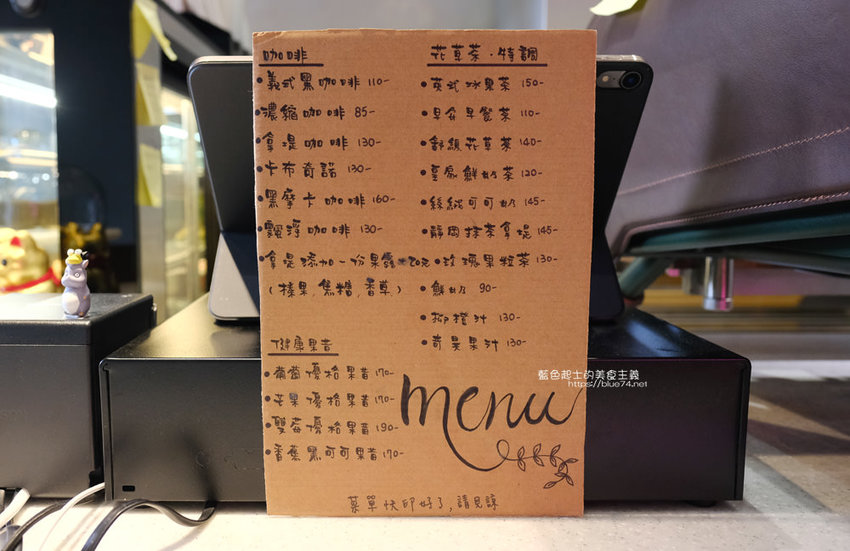 咖啡
義式黑咖啡 110-
濃縮咖啡 85-
拿堤咖啡 130-
卡布奇諾 130-
黑摩卡咖啡 160-
漂浮咖啡 130-
拿堤添加一份果露 20元
(榛果, 焦糖, 香草)
健康果昔
葡萄優格果昔 170-
芒果優格果昔 170-
雙莓優格果昔 190-
香蕉黑可可果昔 170-
花草茶·特調
英式水果茶 150-
早安早餐茶 110-
舒顏花草茶 140-
皇家鮮奶茶 120-
絲絨可可奶 145-
靜岡抹茶拿堤 145-
玫瑰果粒茶 130-
鮮奶 90-
柳橙汁 130-
奇異果汁 130-
menu
菜單快印好了,請見諒
藍色起士的美食主義
https://blue74.net